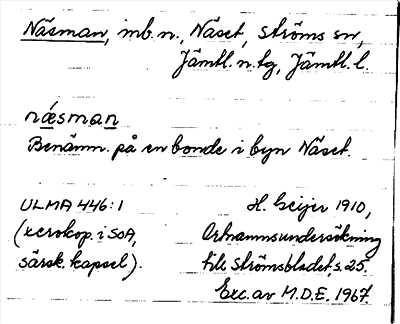 Näsman, inb. n., Näset, Ströms sn,
Jämtl. n. tg, Jämtl. l.
næsman
Benämn. på en bonde i byn Näset.
ULMA 446:1
H. Geijer 1910,
(xerokop. i SOA,
Ortnamnsundersökning
särsk. kapsel).
till Strömsbladet, s. 25.
Exc. av M.D.E. 1967.